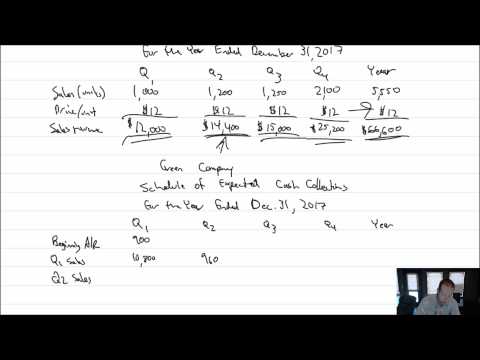 For the Year Ended December 31, 2017
Q1 Q2 Q3 Q4 Year
Sales (units) 1,000 1,200 1,250 2100 5,550
Price/unit $12 $12 $12 $12 $12
Sales revenue $12,000 $14,400 $15,000 $25,200 $66,600
Green Company
Schedule of Expected Cash Collections
For the Year Ended Dec. 31, 2017
Q1 Q2 Q3 Q4 Year
Beginning A/R 900
Q1 Sales 10,800 960
Q2 Sales